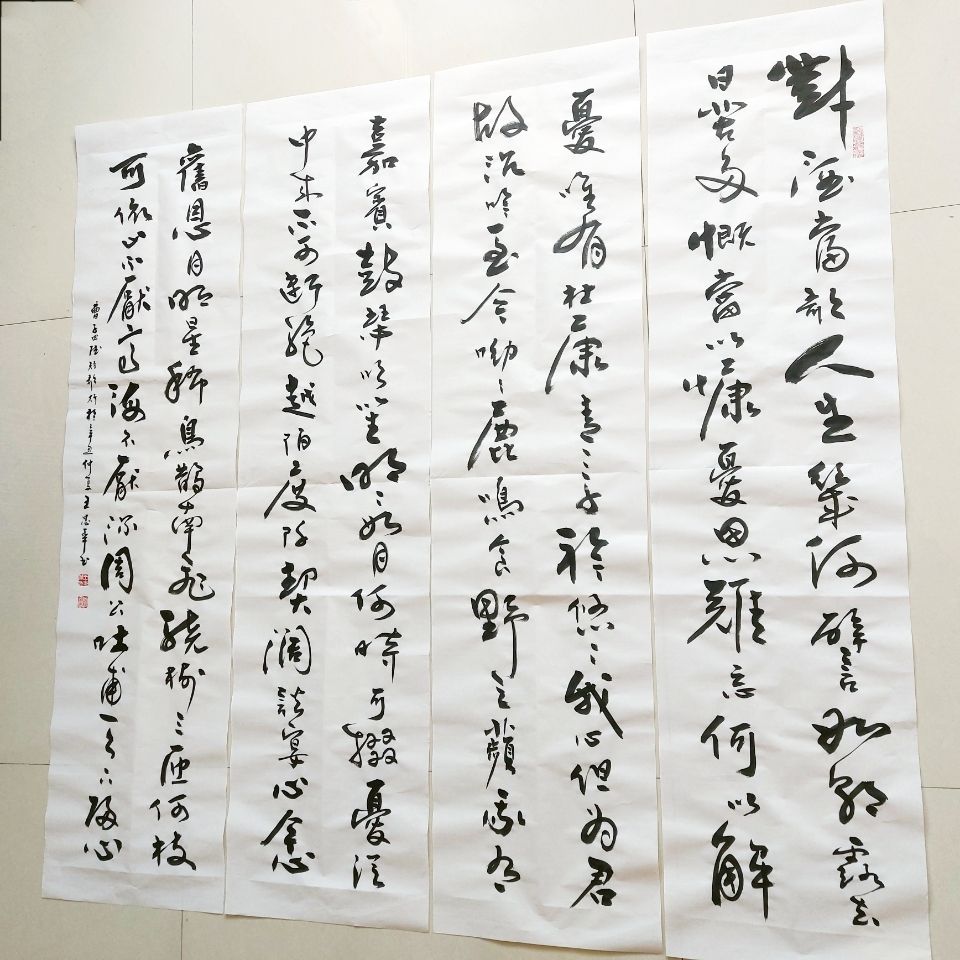 對酒當歌人生幾何譬如朝露去
日苦多慨當以慷憂思難忘何以解
憂唯有杜康青々子衿悠々我心但為君
故沉吟至今呦々鹿鳴食野之蘋我有
嘉賓鼓瑟吹笙明々如月何時可掇憂從
中來不可斷絕越陌度阡契闊談宴心念
舊恩月明星稀烏鵲南飛繞樹三匝何枝
可依山不厭高海不厭深周公吐哺天下歸心
曹孟德短歌行於辛丑仲夏王